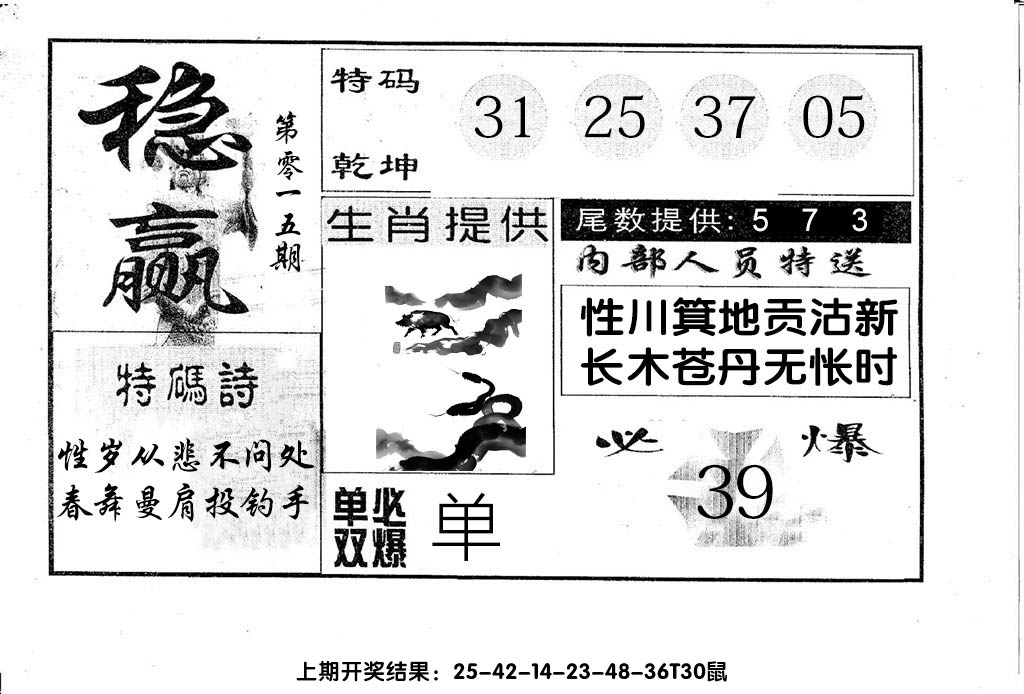 稳赢
第零一五期
特码
乾坤
31 25 37 05
生肖提供
尾数提供: 5 7 3
内部人员特送
性川箕地贡沽新
长木苍丹无怅时
特碼詩
性岁从悲不问处
春舞曼肩投钓手
单双必爆
单
必爆
39
上期开奖结果：25-42-14-23-48-36T30鼠